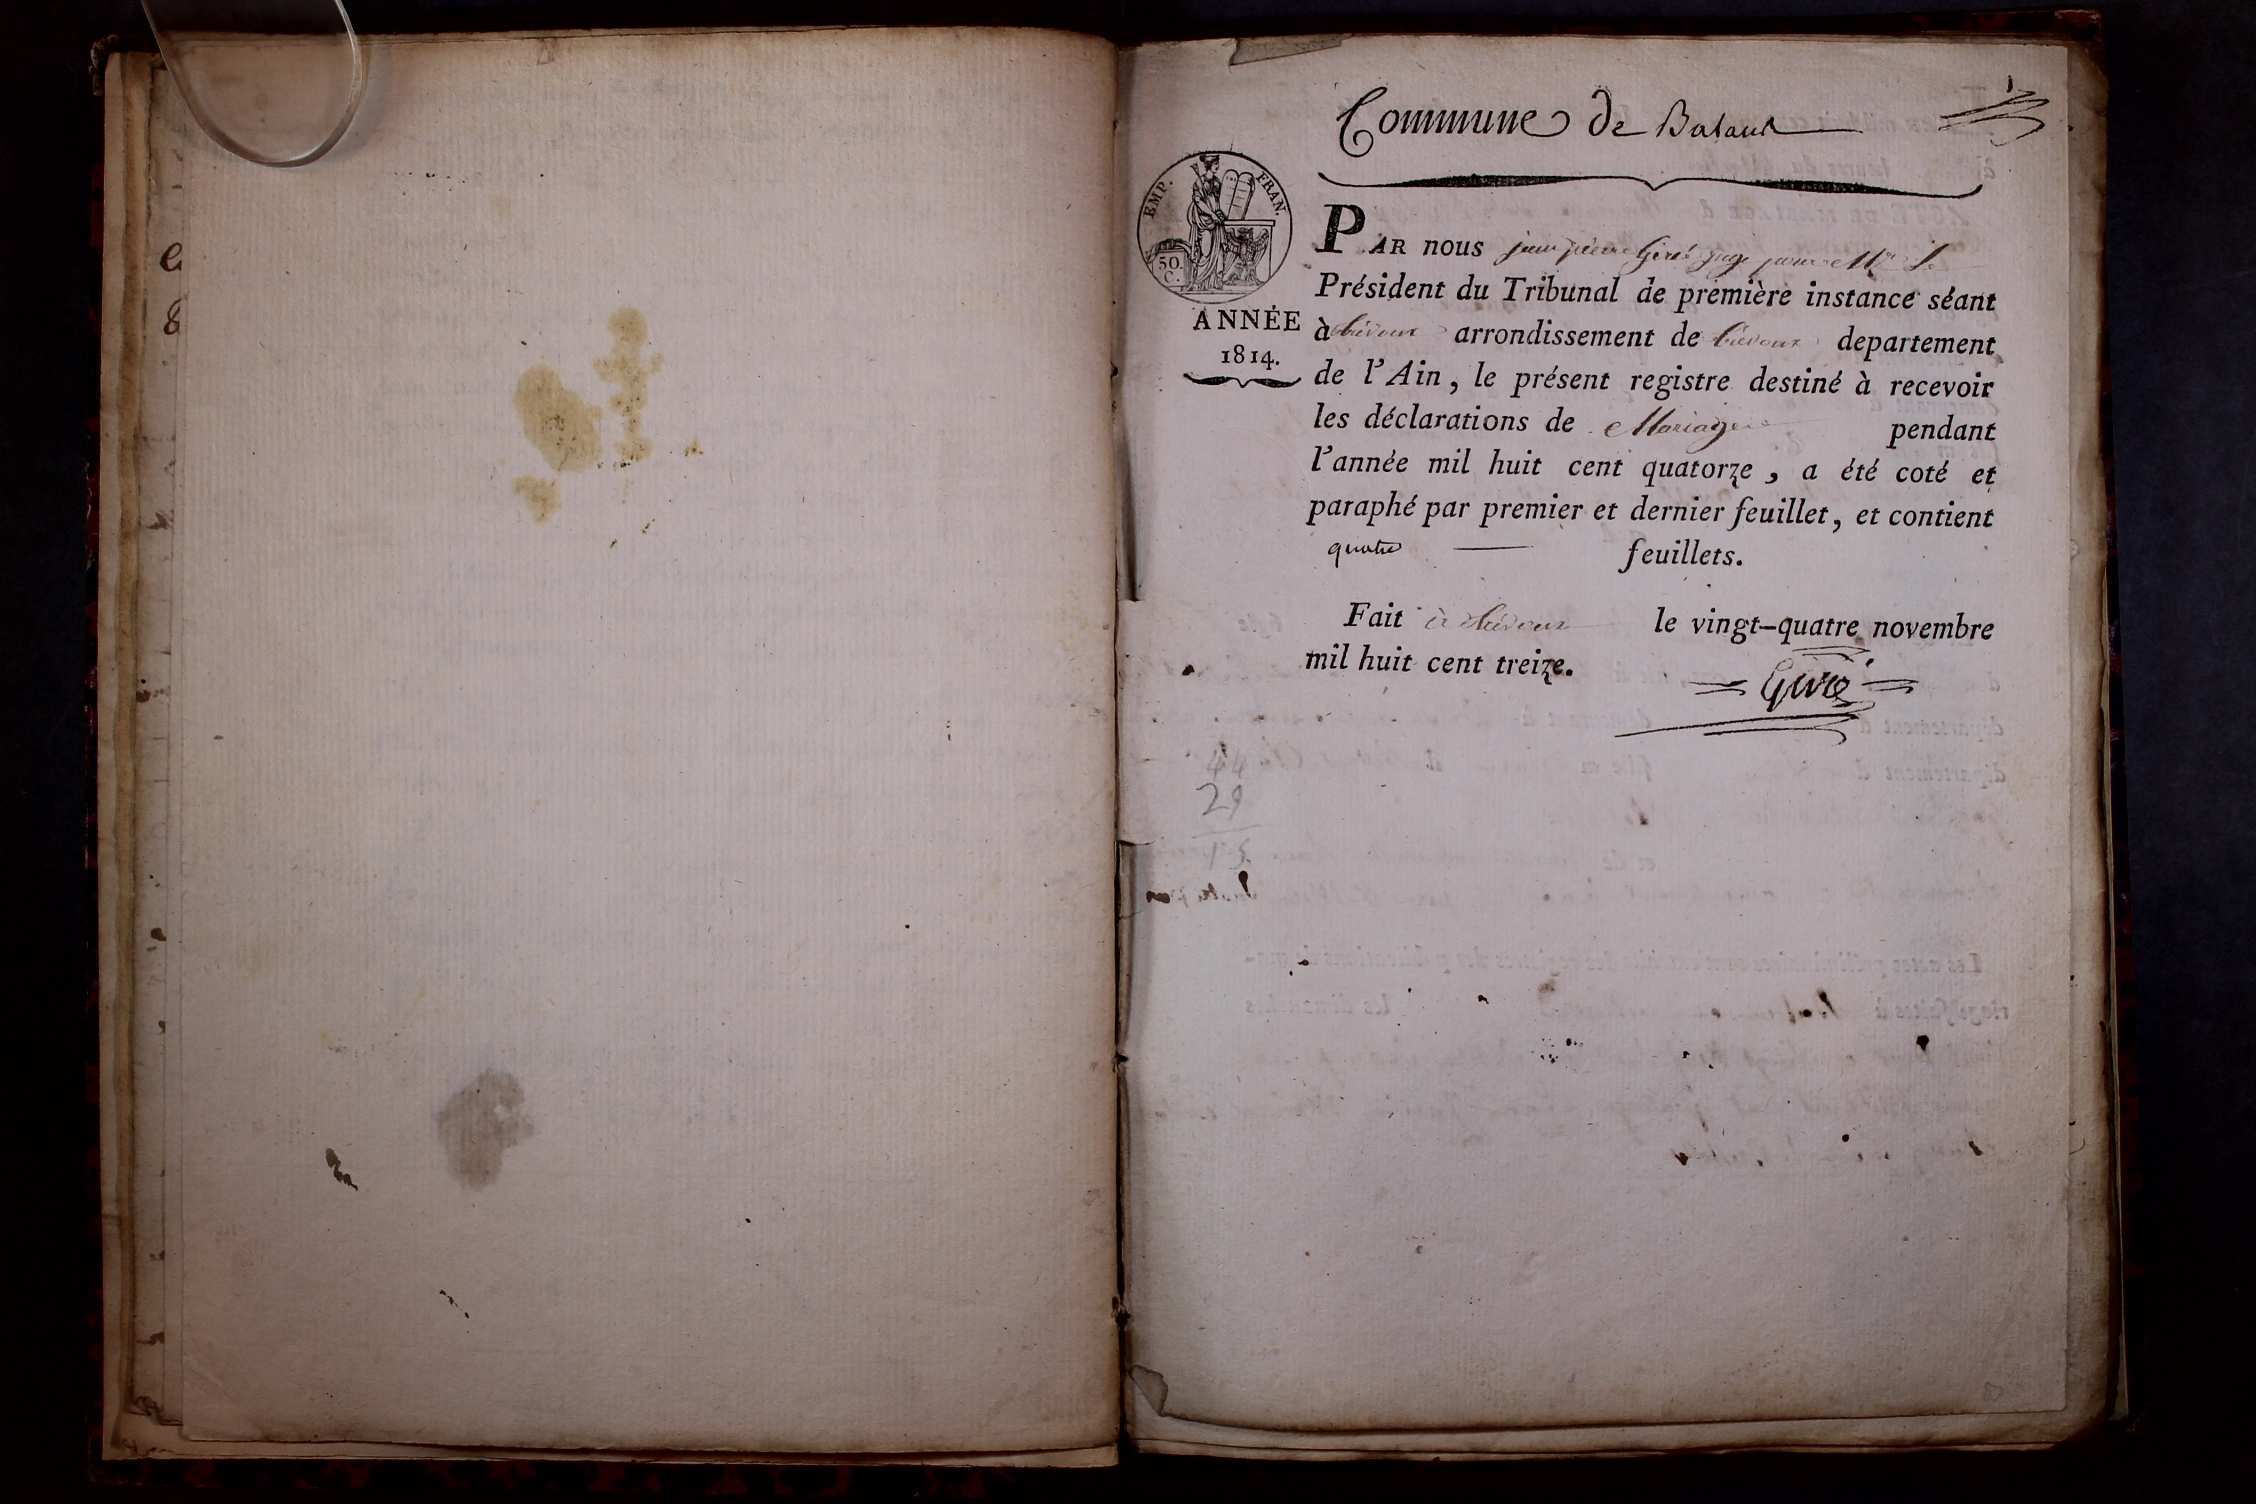 Commune de Balant
EMP. FRAN.
50.
C.
ANNÉE
1814.
PAR nous jean pierre Giré juge pour Mr Le
Président du Tribunal de première instance séant
à trévoux arrondissement de trévoux departement
de l'Ain, le présent registre destiné à recevoir
les déclarations de Mariages pendant
l'année mil huit cent quatorze, a été coté et
paraphé par premier et dernier feuillet, et contient
quatre feuillets.
Fait à trévoux le vingt-quatre novembre
mil huit cent treize.
Giré
44
29
15